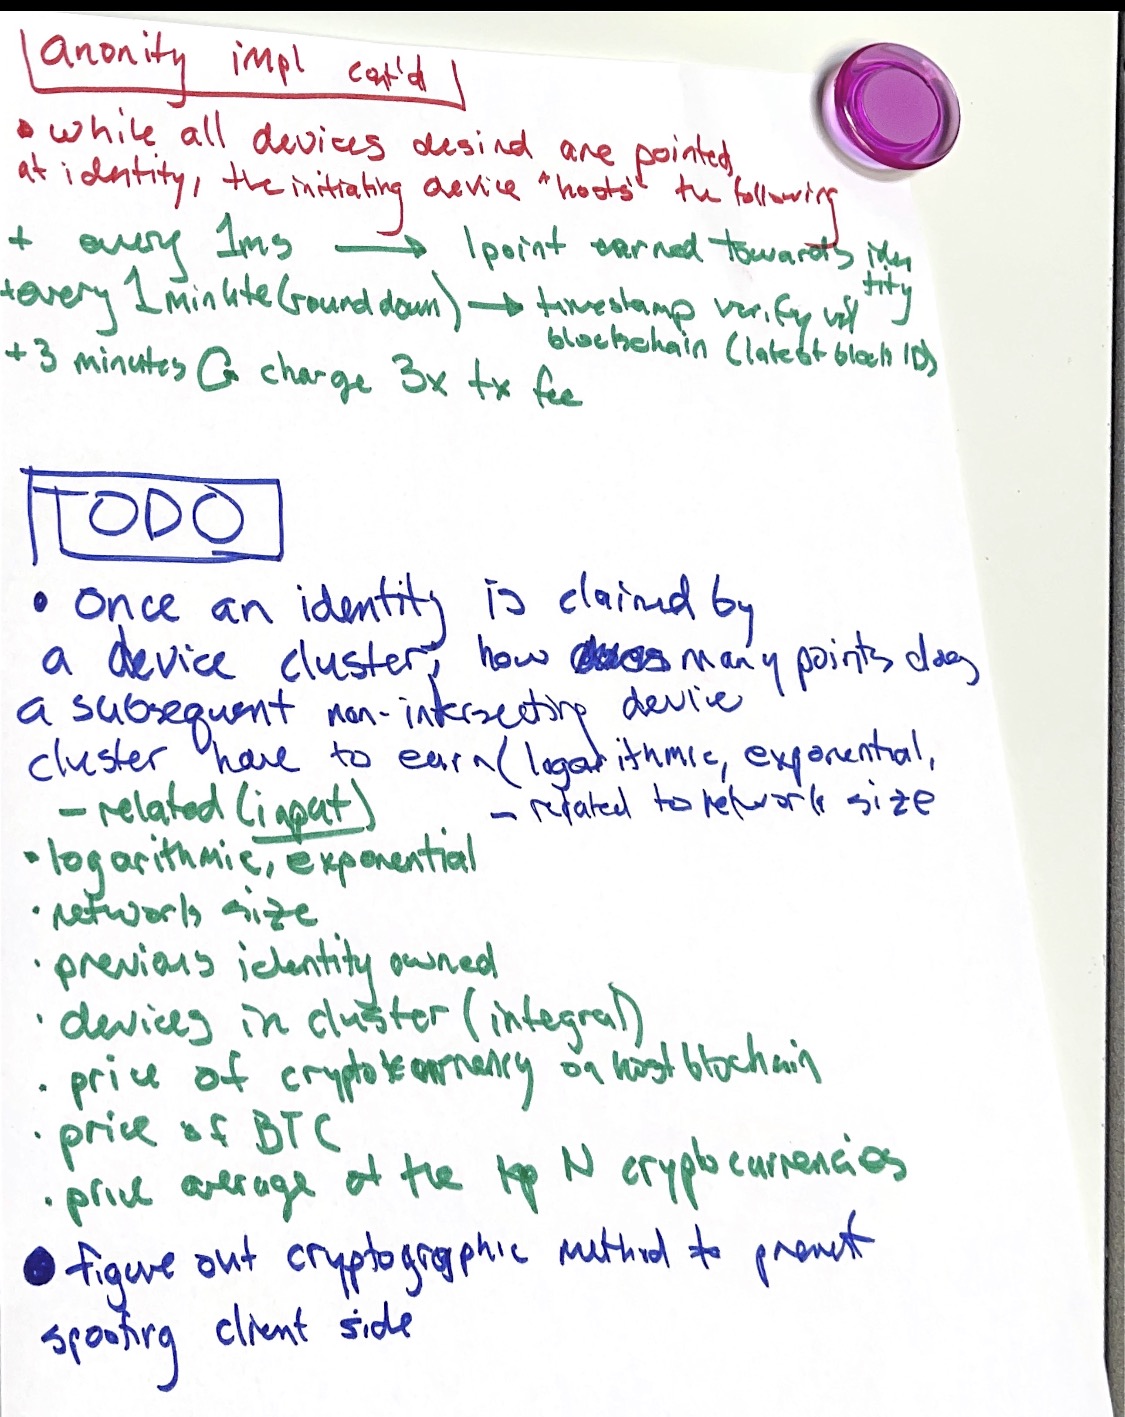 anonity impl cont'd
• while all devices desired are pointed
at identity, the initiating device "hosts" the following
+ every 1ms → 1 point earned towards iden
tity
+ every 1 minute (round down) → timestamp verify w/
blockchain (latest block ID)
+ 3 minutes charge 3x tx fee
TODO
• Once an identity is claimed by
a device cluster, how many points does
a subsequent non-intersecting device
cluster have to earn (logarithmic, exponential,
- related (input) - related to network size
• logarithmic, exponential
• network size
• previous identity owned
• devices in cluster (integral)
• price of cryptocurrency on host blochain
• price of BTC
• price average of the top N cryptocurrencies
• figure out cryptographic method to prevent
spoofing client side